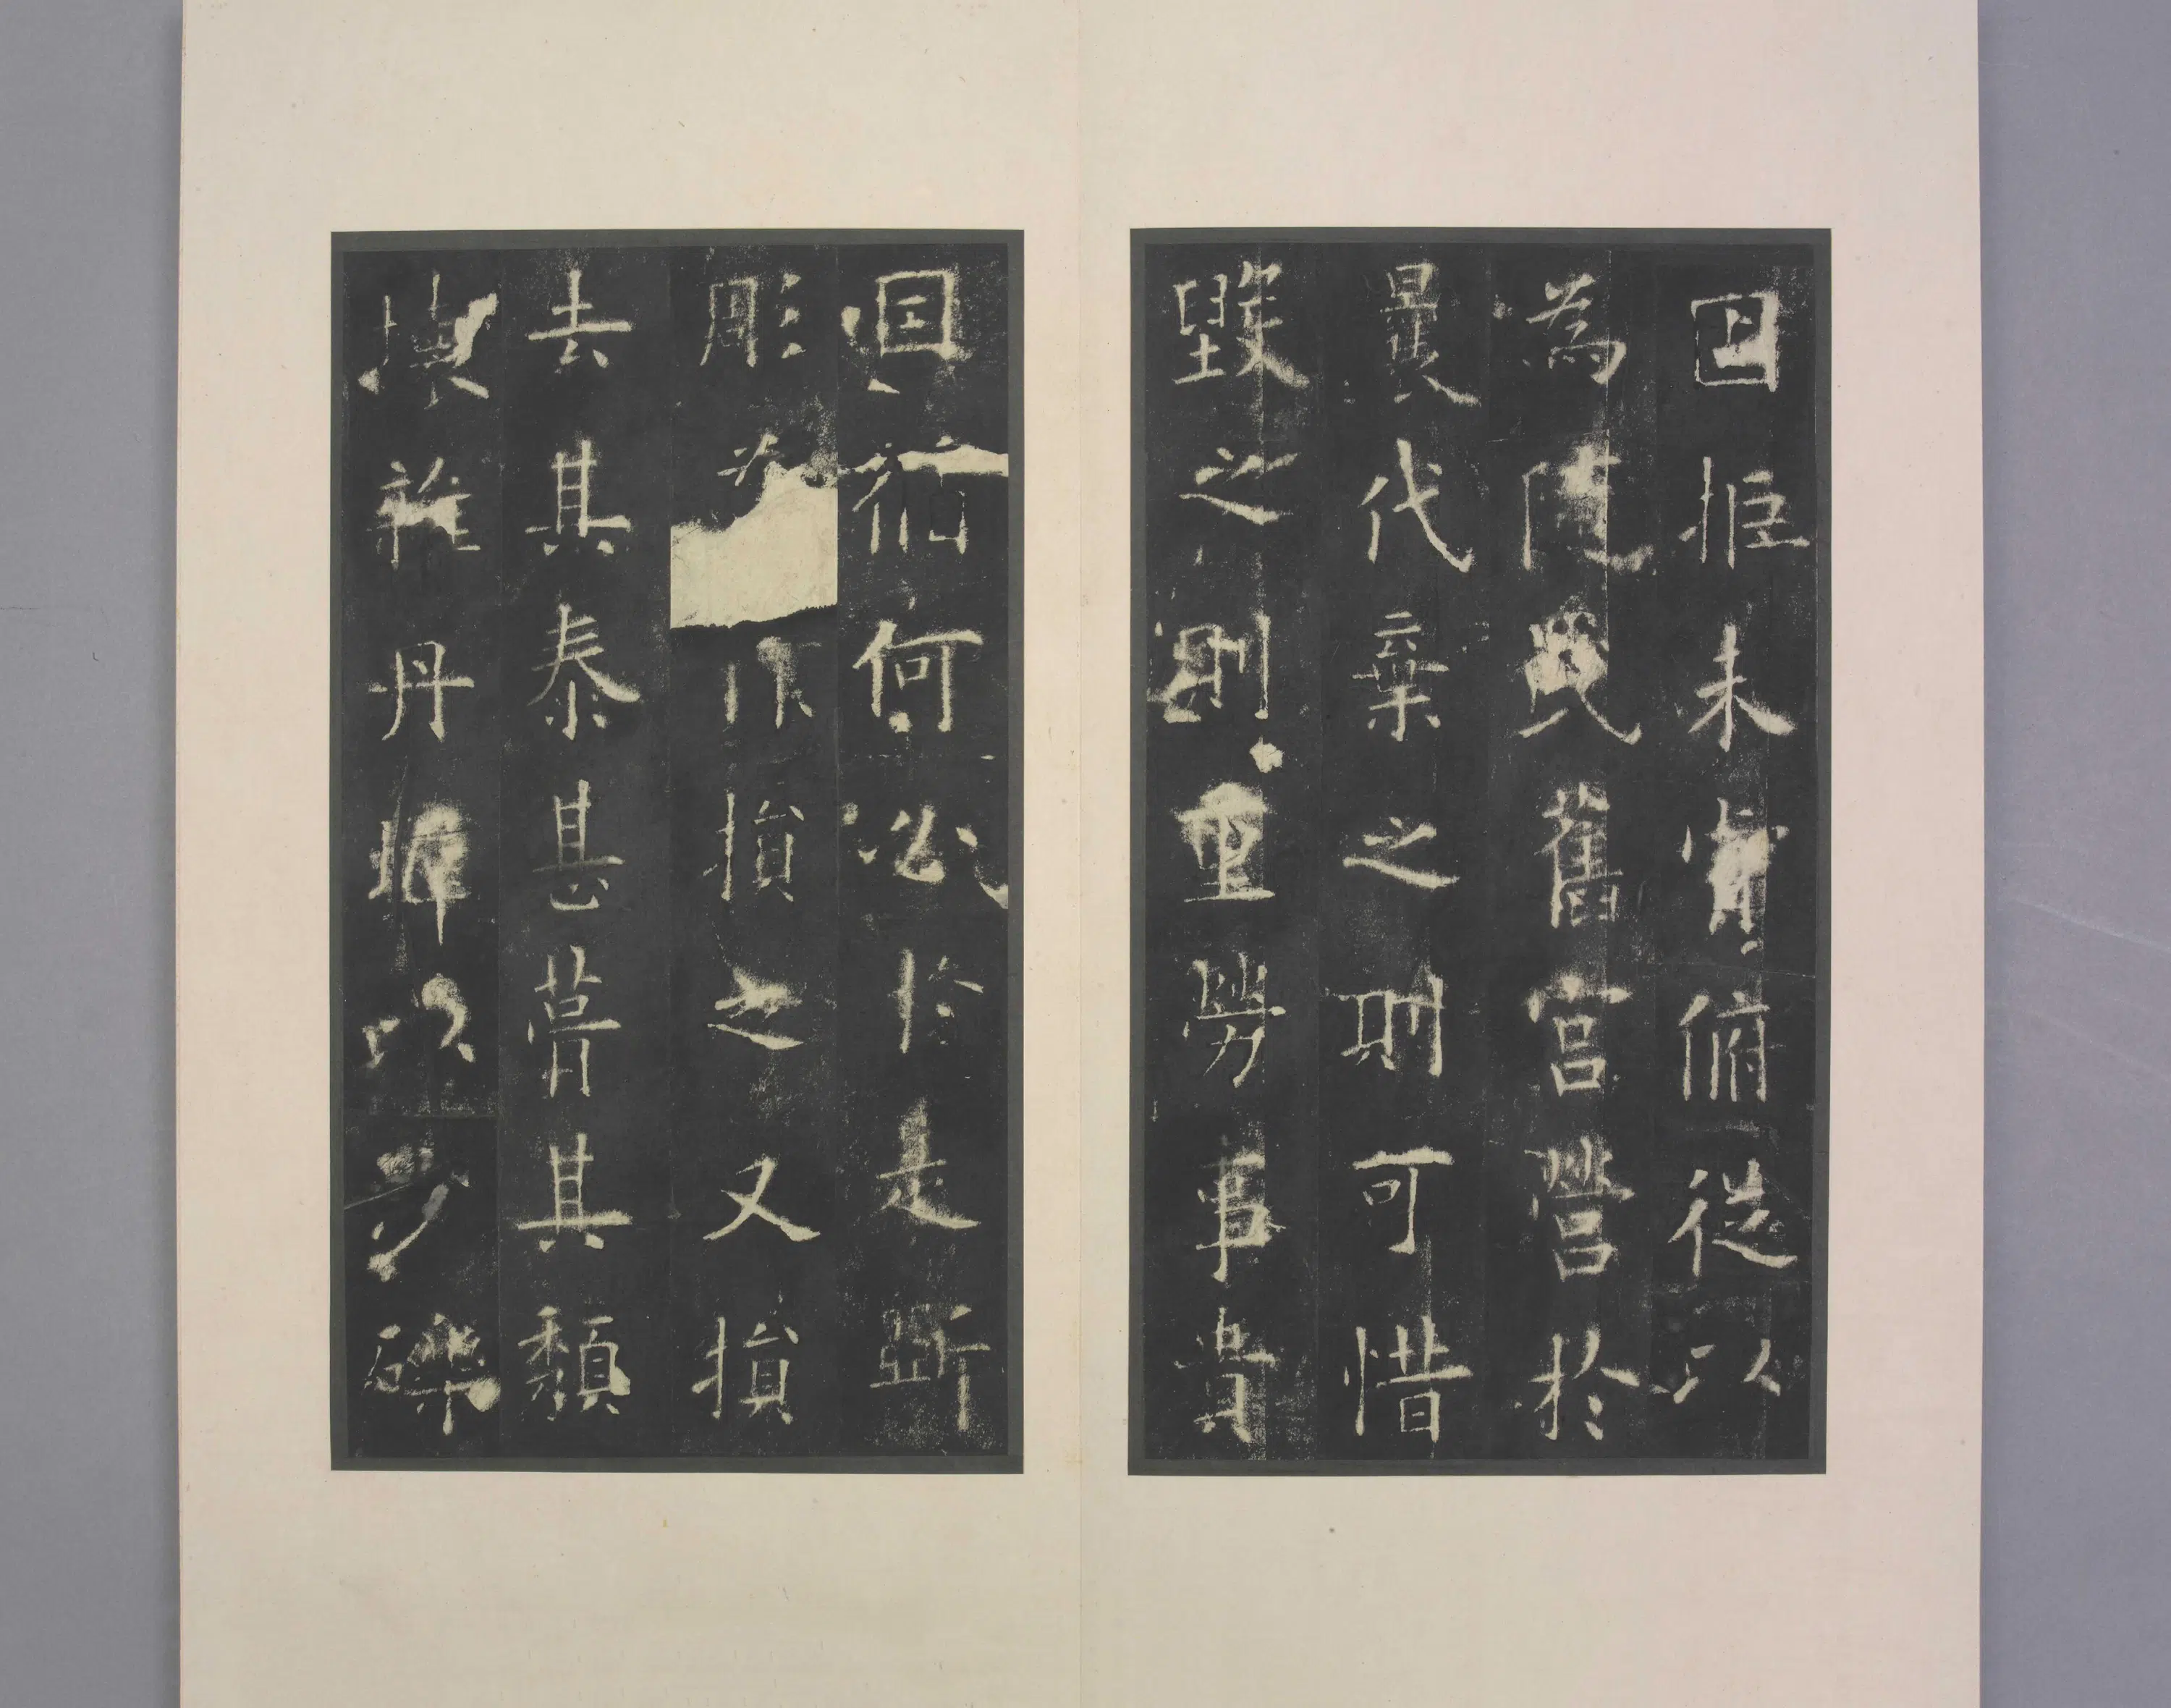 固拒未肯俯従以
為隨氏舊宮營於
曩代棄之則可惜
毀之則重勞事貴
因循何於是斲
彫損之又損
去其泰甚葺其頹
壞雜丹墀以沙礫